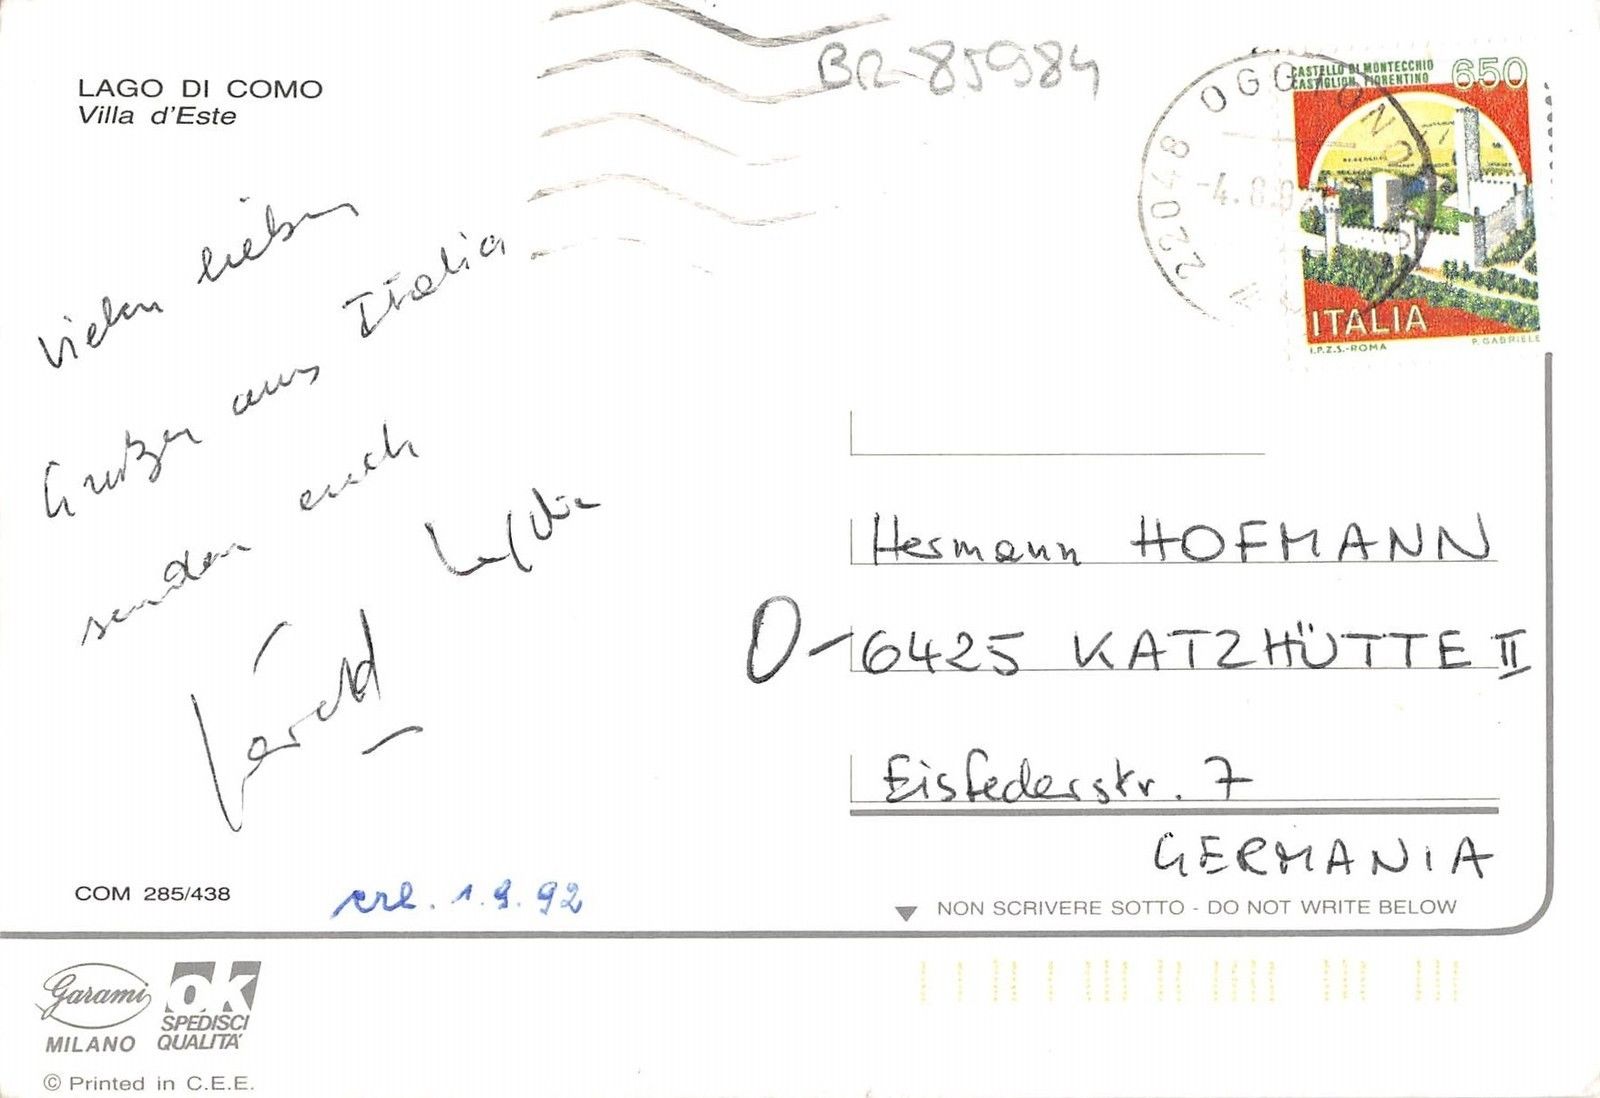 LAGO DI COMO
Villa d'Este
BR-85984
CASTELLO DI MONTECCHIO
CASTIGLION FIORENTINO
650
22048 OGGIONO
-4.8.92
ITALIA
I.P.Z.S.-ROMA
P. GABRIELE
Vielen lieben
Grüßen aus Italia
senden euch
Hermann HOFMANN
O-6425 KATZHÜTTE II
Eisfederstr. 7
GERMANIA
COM 285/438
erl. 1.9.92
NON SCRIVERE SOTTO - DO NOT WRITE BELOW
Garami
MILANO
OK
SPEDISCI
QUALITA'
© Printed in C.E.E.